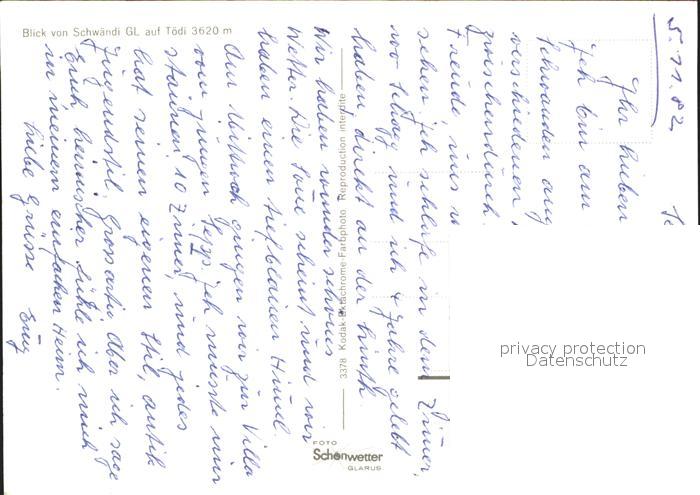 Blick von Schwändi GL auf Tödi 3620 m
5.11.82
Ihr Lieben
Ich bin am
Schwanden aug
verschiedenen
zwischendurch.
Freude uns
sehen ich schlafe in dem Zimer,
wo Tildy und ich 4 Jahre gelebt
haben direkt an der Linth.
Wir haben wunderschönes
Wetter. Die Sone scheint und wir
haben einen tiefblauen Himel.
Am Mittwoch gingen wir zur Villa
vom jungen Ich musste nur
staunen! 10 Zimer, und jedes
hat seinen eigenen Stil, antik
Jugendstil. Grossartig Aber ich sage
Euch heimischer fühle ich mich
in meinem einfachen Heim.
Liebe Grüsse
3378 Kodak-Ektachrome-Farbphoto Reproduction interdite
FOTO
Schönwetter
GLARUS
privacy protection
Datenschutz